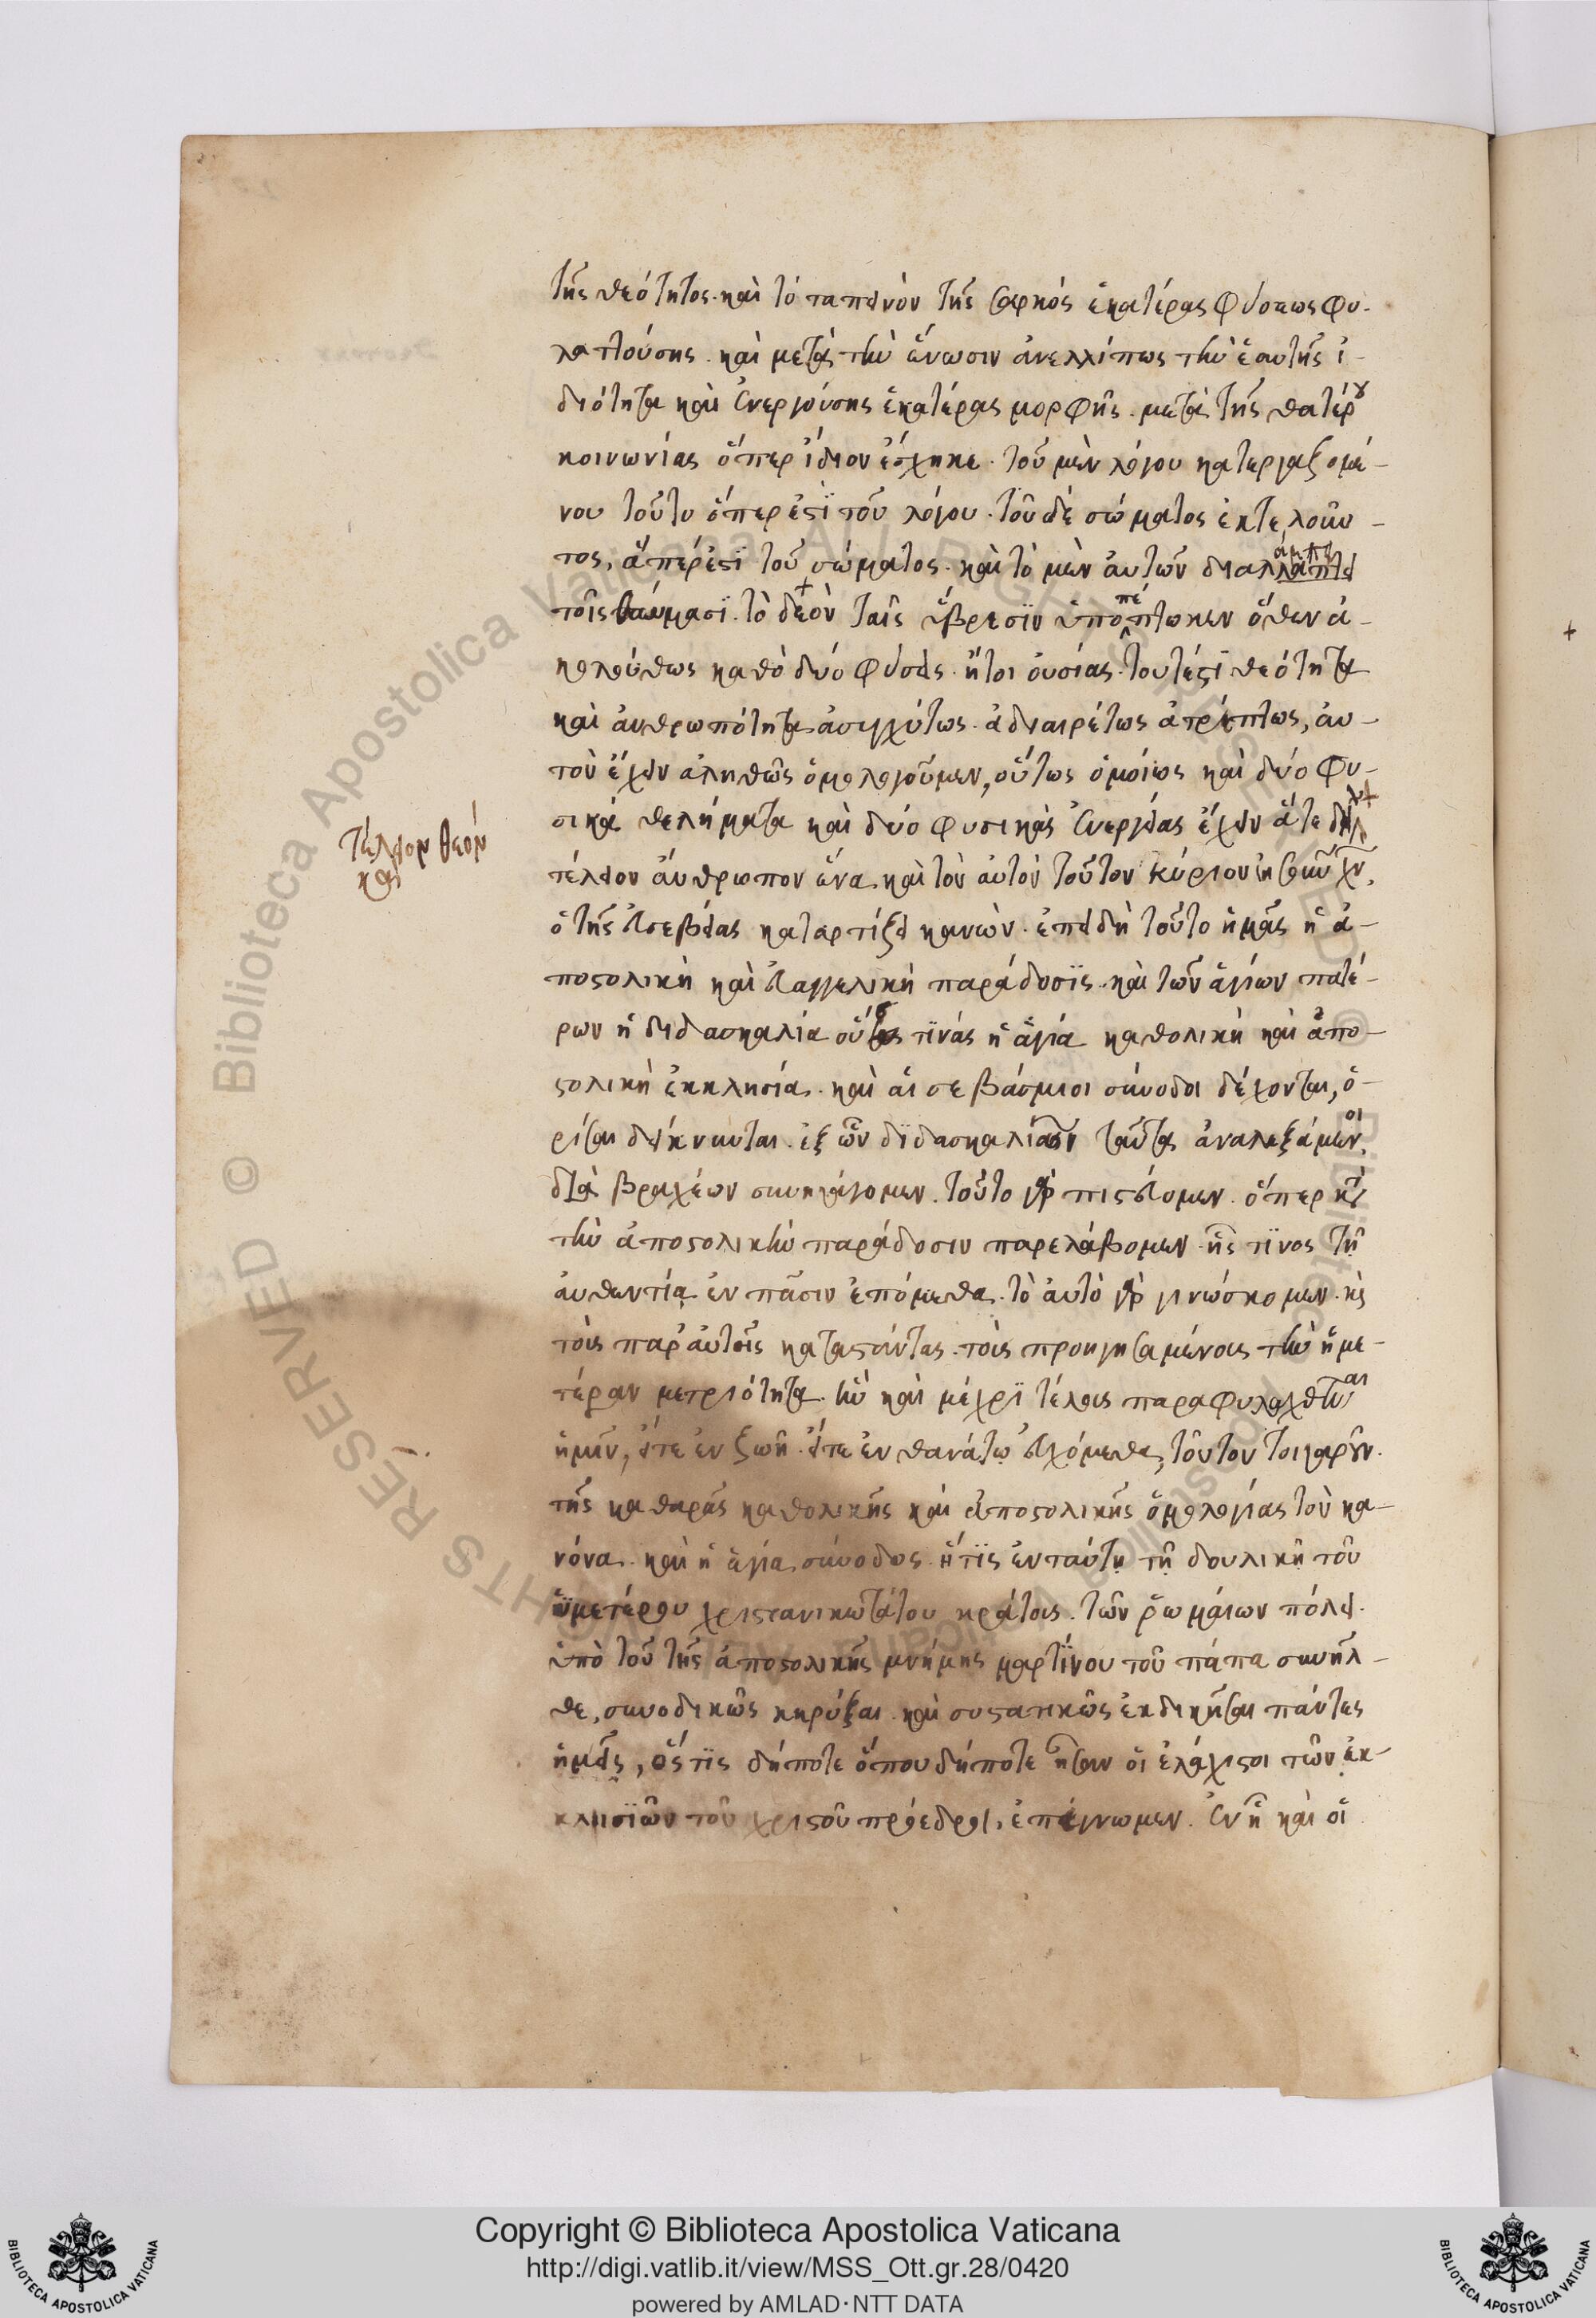 τῆς θεότητος· καὶ τὸ ταπεινὸν τῆς σαρκός ἑκατέρας φύσεως φυ-
λαττούσης· καὶ μετὰ τὴν ἕνωσιν ἀνελλίπως τὴν ἑαυτῆς ἰ-
διότητα καὶ ἐνεργούσης ἑκατέρας μορφῆς· μετὰ τῆς θατέρου
κοινωνίας ὅπερ ἴδιον ἔσχηκε· τοῦ μὲν λόγου κατεργαζομέ-
νου τοῦτο ὅπερ ἐστὶ τοῦ λόγου· τοῦ δὲ σώματος ἐκτελοῦν-
τος, ἅπέρ ἐστι τοῦ σώματος· καὶ τὸ μὲν αὐτῶν διαλλάπτει
τοῖς θαύμασι· τὸ δεὸν ταῖς ὕβρεσιν ὑποπέπτωκεν ὅθεν ἀ-
κολούθως καθὸ δύο φύσεις· ἤτοι οὐσίας· τουτέστι θεότητα
καὶ ἀνθρωπότητα ἀσυγχύτως· ἀδιαιρέτως ἀτρέπτως, αὐ-
τὸν ἔχειν ἀληθῶς ὁμολογοῦμεν, οὕτως ὁμοίως καὶ δύο φυ-
σικὰ θελήματα καὶ δύο φυσικὰς ἐνεργείας ἔχειν ἅτε δὴ
τέλειον θεόν
καὶ
τέλειον ἄνθρωπον ἕνα καὶ τὸν αὐτὸν τοῦτον κύριον ἰησοῦν χν,
ὁ τῆς εὐσεβείας καταρτίζει κανών· ἐπειδὴ τοῦτο ἡμᾶς ἡ ἀ-
ποστολικὴ καὶ εὐαγγελικὴ παράδοσις· καὶ τῶν ἁγίων πατέ-
ρων ἡ διδασκαλία οὕς τινάς ἡ ἁγία καθολικὴ καὶ ἀπο-
στολικὴ ἐκκλησία· καὶ αἱ σεβάσμιοι σύνοδοι δέχονται, ὁ-
ρίζαι δείκνυται· ἐξ ὧν διδασκαλιῶν ταῦτα ἀναλεξάμενοι
διὰ βραχέων συνηγάγομεν· τοῦτο γὰρ πιστεύομεν· ὅπερ κατὰ
τὴν ἀποστολικὴν παράδοσιν παρελάβομεν· ἧς τινος τῇ
αὐθεντίᾳ ἐν πᾶσιν ἑπόμεθα· τὸ αὐτὸ γὰρ γινώσκομεν· κς
τοὺς παρ' αὐτοῖς καταστάντας· τοὺς προηγησαμένους τὴν ἡμε-
τέραν μετριότητα· ἣν καὶ μέχρι τέλους παραφυλαχθῆναι
ἡμῖν, εἴτε ἐν ζωῇ· εἴτε ἐν θανάτῳ εὐχόμεθα, τοῦτον τοιγαροῦν·
τῆς καθαρᾶς καθολικῆς καὶ ἀποστολικῆς ὁμολογίας τὸν κα-
νόνα· καὶ ἡ ἁγία σύνοδος· ἥτις ἐνταύτῃ τῇ δουλικῇ τοῦ
ὑμετέρου χριστιανικωτάτου κράτους· τῶν ῥωμαίων πόλει·
ὑπὸ τοῦ τῆς ἀποστολικῆς μνήμης μαρτίνου τοῦ πάπα συνῆλ-
θε, συνοδικῶς κηρύξαι· καὶ συστατικῶς ἐκδικῆσαι πάντες
ἡμεῖς, οἵ τις δήποτε ὅπου δήποτε ἦσαν οἱ ἐλάχιστοι τῶν ἐκ-
κλησιῶν τοῦ χριστοῦ πρόεδροι, ἐπέγνωμεν· ἐν ᾗ καὶ οἱ
Copyright © Biblioteca Apostolica Vaticana
http://digi.vatlib.it/view/MSS_Ott.gr.28/0420
powered by AMLAD·NTT DATA